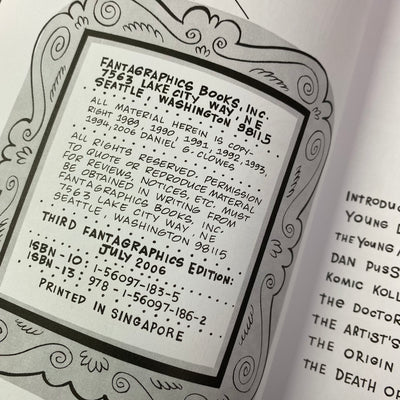 FANTAGRAPHICS BOOKS, INC.
7563 LAKE CITY WAY NE
SEATTLE, WASHINGTON 98115
ALL MATERIAL HEREIN IS COPY-
RIGHT 1989, 1990, 1991, 1992, 1993,
1994, 2006 DANIEL G. CLOWES
ALL RIGHTS RESERVED. PERMISSION
TO QUOTE OR REPRODUCE MATERIAL
FOR REVIEWS, NOTICES, ETC. MUST
BE OBTAINED IN WRITING FROM
FANTAGRAPHICS BOOKS, INC.
7563 LAKE CITY WAY NE
SEATTLE, WASHINGTON 98115
THIRD FANTAGRAPHICS EDITION:
JULY 2006
ISBN-10: 1-56097-183-5
ISBN-13: 978-1-56097-186-2
PRINTED IN SINGAPORE
INTRODU
YOUNG
THE YOUNG
DAN PUSS
KOMIC KOLL
THE DOCTOR
THE ARTIST'S
THE ORIGIN
THE DEATH OF